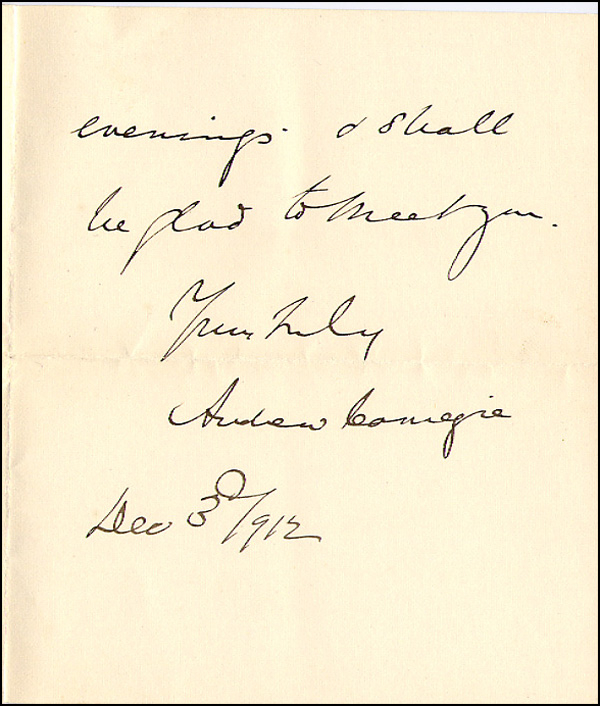 evenings. & shall
be glad to meet you.
Yours truly
Andrew Carnegie
Dec 3d/1912